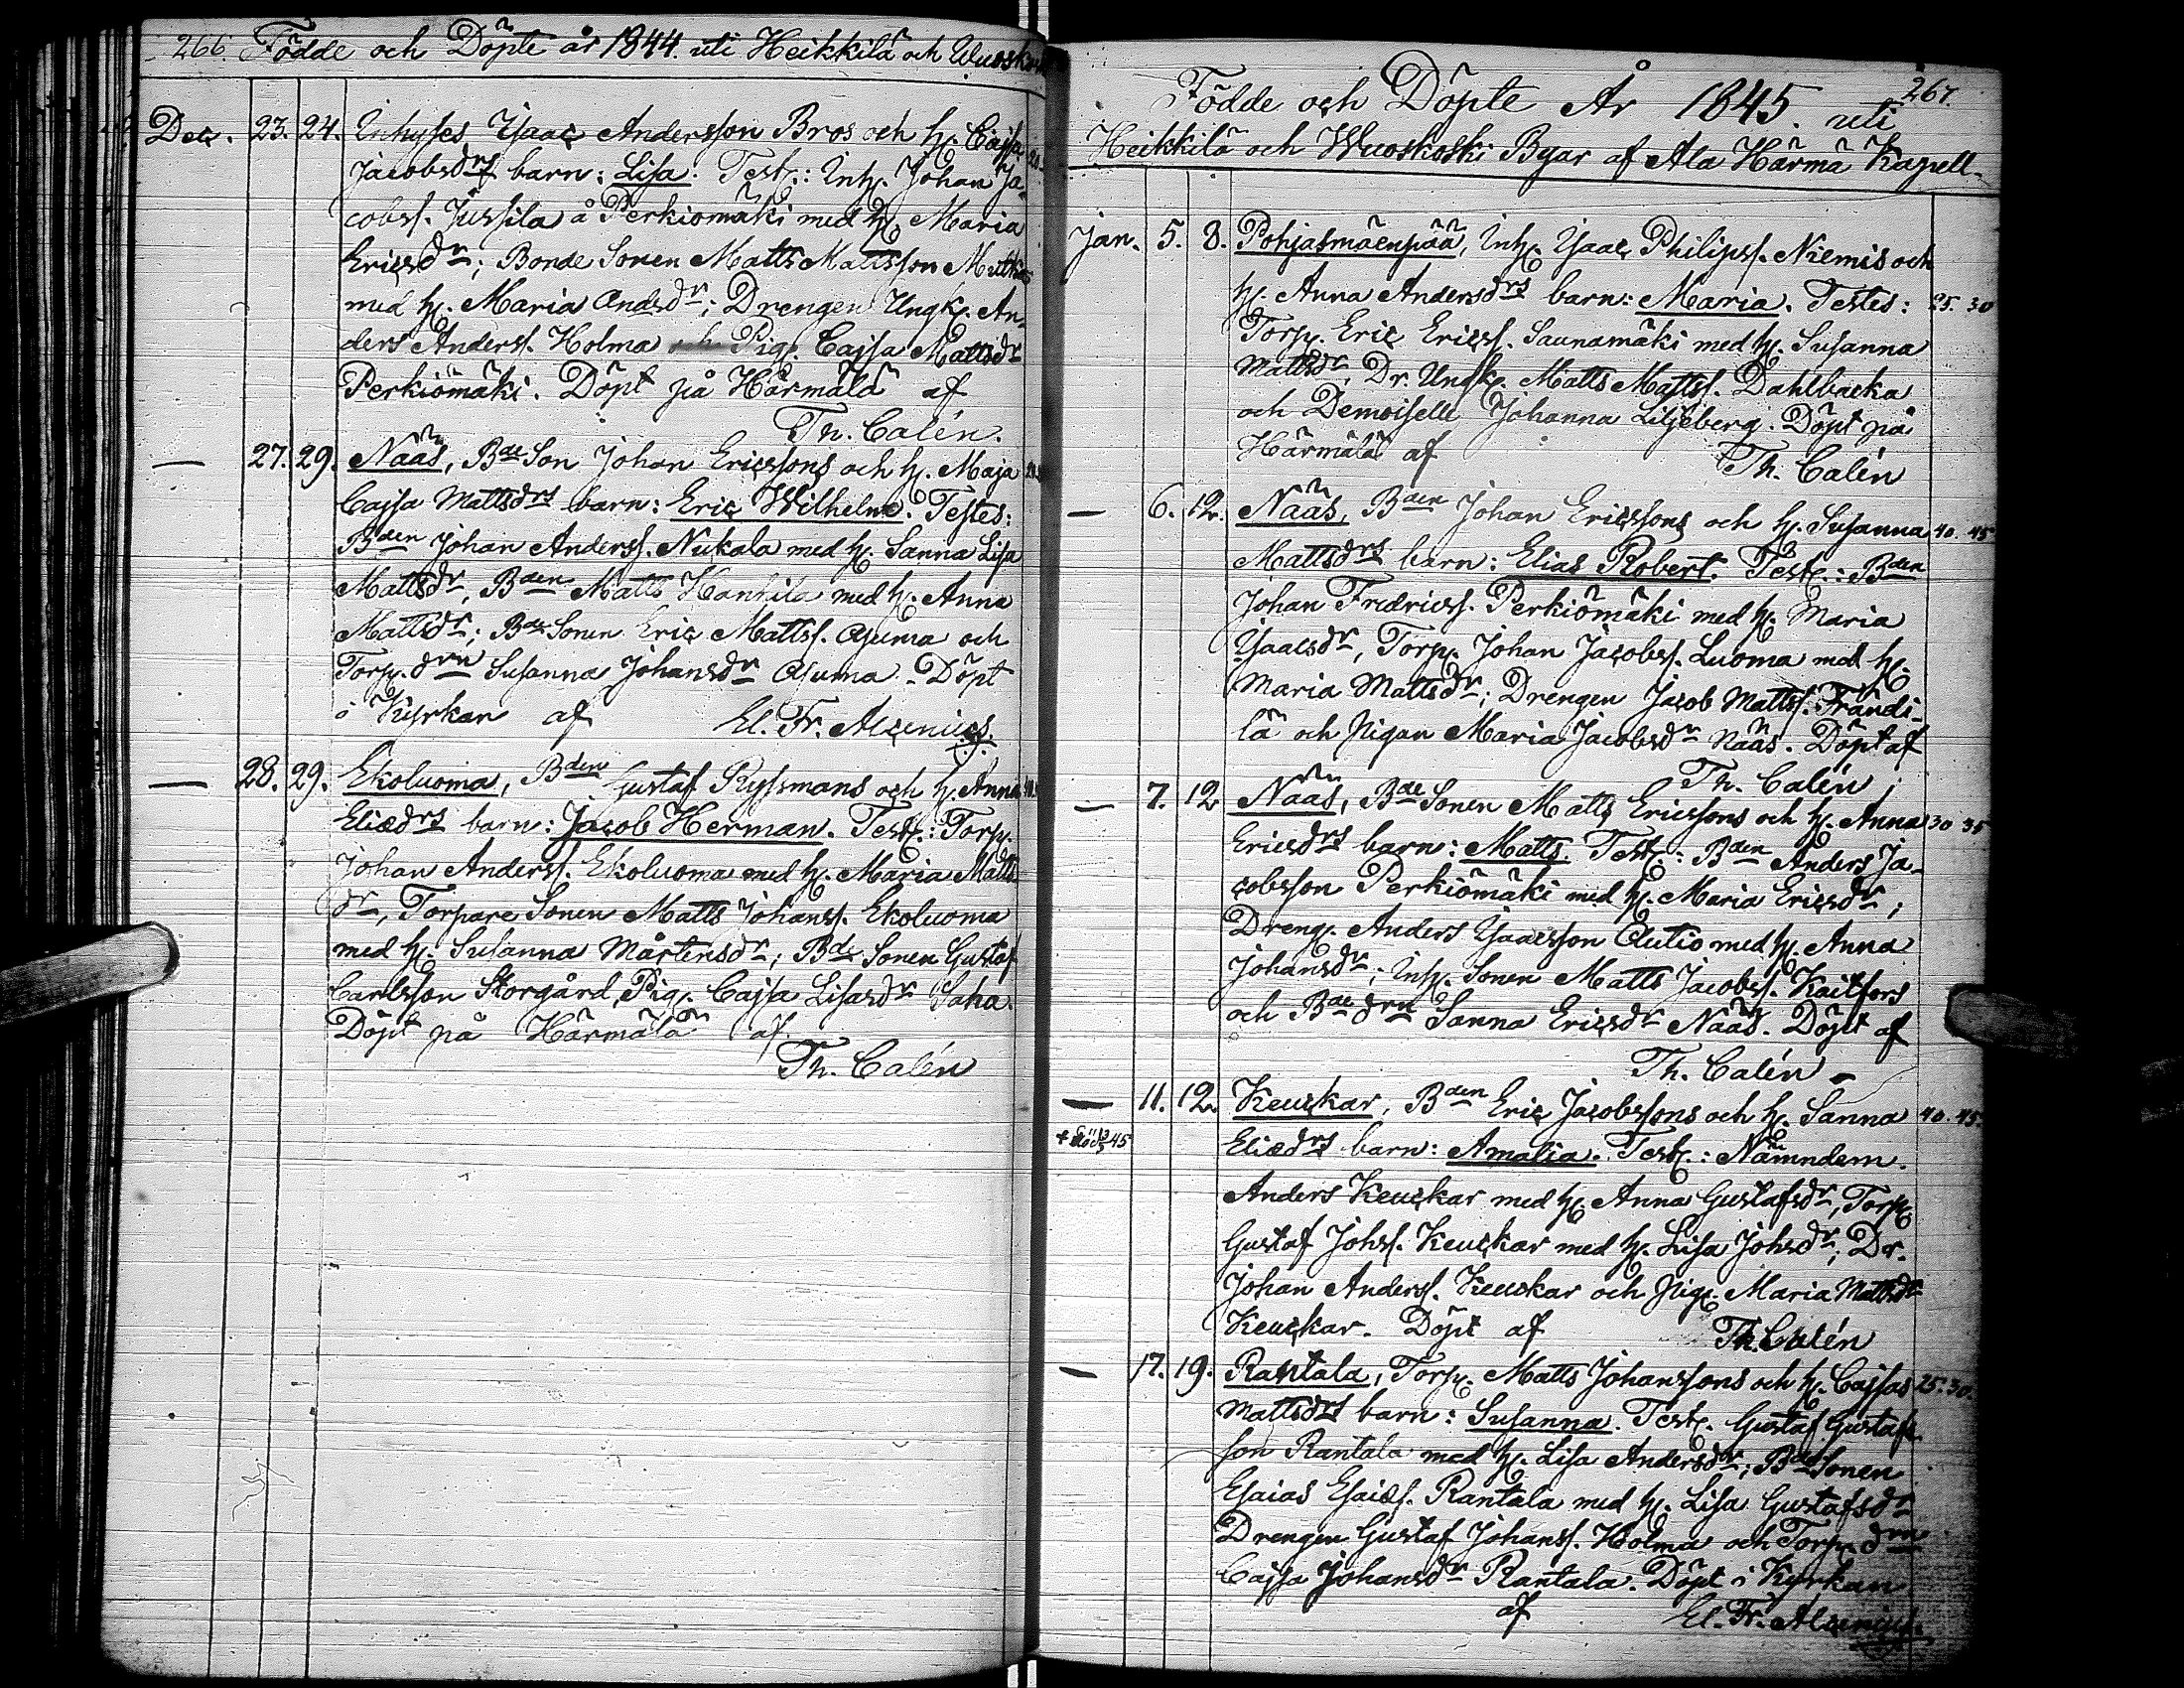 266. Födde och Döpte år 1844. uti Heikkilä och Wuosko
Dec. 23. 24. Inhyses Isaac Andersson Bros och h. Cajsa
Jacobsdrs barn: Lisa. Test.: Inh. Johan Ja-
cobss. Jussila å Perkiomäki med h. Maria
Ericsdr; Bonde Sonen Matts Mattsson Mutka
med h. Maria Andsdr; Drengen Ungk. An-
ders Anderss. Holma och Pig. Cajsa Mattsdr
Perkiömäki. Döpt på Härmälä af
Th. Calén.
— 27. 29. Näås, Bde Son Johan Ericssons och h. Maja
Cajsa Mattsdrs barn: Eric Wilhelm. Testes:
Bden Johan Anderss. Nukala med h. Sanna Lisa
Mattsdr, Bden Matts Hanhila med h. Anna
Mattsdr; Bde Sonen Eric Mattss. Ajuma och
Torp. drn Susanna Johansdr Ajuma. Döpt
i Kyrkan af El. Fr. Alcenius.
— 28. 29. Ekoluoma, Bden Gustaf Ryssmans och h. Anna
Eliædrs barn: Jacob Herman. Test.: Torp.
Johan Anderss. Ekoluoma med h. Maria Matts
dr, Torpare Sonen Matts Johanss. Ekoluoma
med h. Susanna Mårtensdr; Bde Sonen Gustaf
Carlsson Storgård, Pig. Cajsa Lisasdr Saha.
Döpt på Härmälä af
Th. Calén
267.
Födde och Döpte År 1845. uti
Heikkilä och Wuoskoski Byar af Ala Härmä Kapell.
Jan. 5. 8. Pohjasmäenpää, Inh. Isaac Philipss. Niemis och
h. Anna Andersdrs barn: Maria. Testes: 25. 30
Torp. Eric Ericss. Saunamäki med h. Susanna
Mattsdr, Dr. Ungk. Matts Mattss. Dahlbacka
och Demoiselle Johanna Liljeberg. Döpt på
Härmälä af Th. Calén
— 6. 12. Näås, Bden Johan Ericssons och h. Susanna 40. 45
Mattsdrs barn: Elias Robert. Test.: Bden
Johan Fredricss. Perkiömäki med h. Maria
Isaacsdr, Torp. Johan Jacobss. Luoma med h.
Maria Mattsdr; Drengen Jacob Mattss. Frändi-
lä och Pigan Maria Jacobsdr Nääs. Döpt af
Th. Calén
— 7. 12 Nääs, Bde Sonen Matts Ericssons och h. Anna 30 35
Ericsdrs barn: Matts. Test.: Bden Anders Ja-
cobsson Perkiömäki med h. Maria Ericsdr;
Dreng. Anders Isacsson Autio med h. Anna
Johansdr; Inh. Sonen Matts Jacobss. Kaitfors
och Bde drn Sanna Ericsdr Nääs. Döpt af
Th. Calén
— 11. 12. Keuckar, Bden Eric Jacobssons och h. Sanna 40. 45.
Eliædrs barn: Amalia. Test.: Nämndem.
Anders Keuckar med h. Anna Gustafsdr, Torp.
Gustaf Johss. Keuckar med h. Lisa Johsdr; Dr.
Johan Anderss. Keuckar och Pig. Maria Mattsdr
Keuckar. Döpt af Th. Calén
— 17. 19. Rantala, Torp. Matts Johanssons och h. Cajsas 25. 30.
Mattsdrs barn: Susanna. Test. Gustaf Gustafs
son Rantala med h. Lisa Andersdr; Bde Sonen
Esaias Esaiæs. Rantala med h. Lisa Gustafsdr
Drengen Gustaf Johanss. Holma och Torp. drn
Cajsa Johansdr Rantala. Döpt i Kyrkan
af El. Fr. Alcenius.